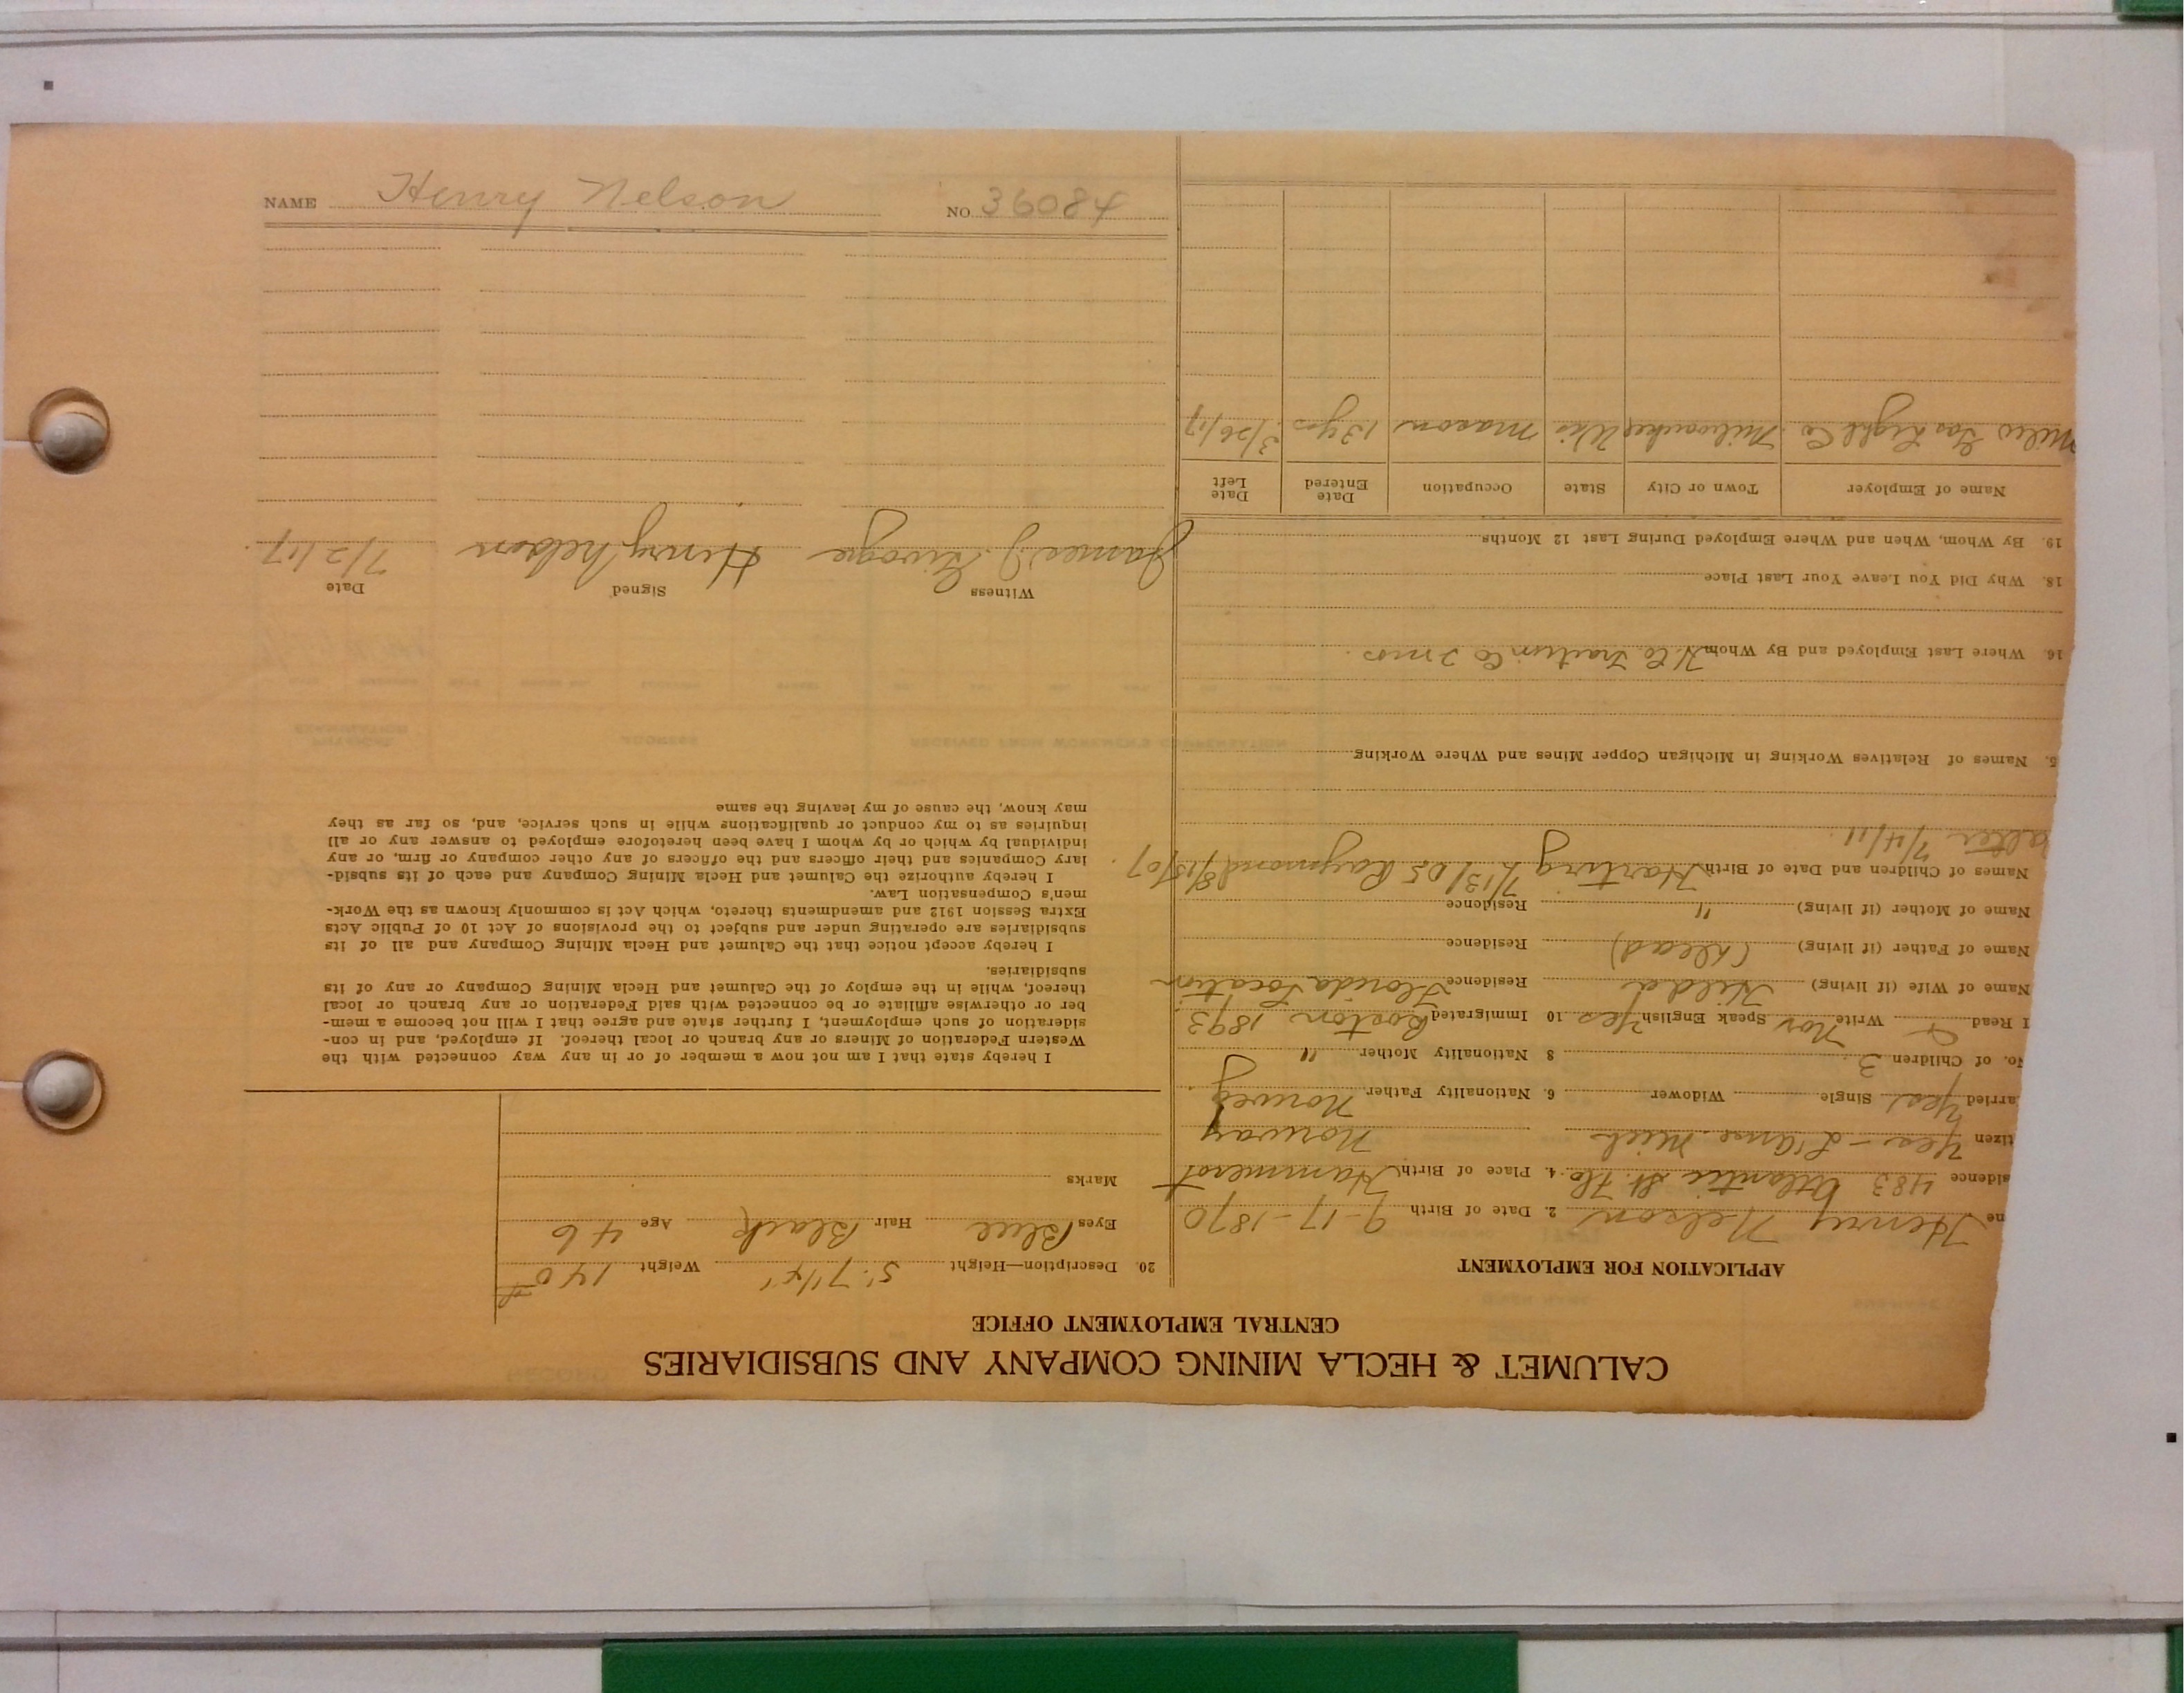 NAME Henry Nelson NO. 36084
CALUMET & HECLA MINING COMPANY AND SUBSIDIARIES
CENTRAL EMPLOYMENT OFFICE
APPLICATION FOR EMPLOYMENT
ne Henry Nelson 2. Date of Birth 9-17-1870
sidence 483 Atlantic St. Flo. 4. Place of Birth Hammerst
tizen Yes - L'Anse Mich Norway
arried Yes Single Widower 6. Nationality Father Norweg
No. of Children 3 8 Nationality Mother "
I Read & Write Nor Speak English Yes 10 Immigrated Boston 1893
Name of Wife (if living) Hilda Residence Florida Location
Name of Father (if living) (Dead) Residence
Name of Mother (if living) " Residence
Names of Children and Date of Birth 7/13/05 Raymond 8/15/07
alter 7/4/11
5. Names of Relatives Working in Michigan Copper Mines and Where Working
16. Where Last Employed and By Whom H. C. Traction Co 2 mos.
18. Why Did You Leave Your Last Place
19. By Whom, When and Where Employed During Last 12 Months
Name of Employer Town or City State Occupation Date Entered Date Left
Milw Gas Light Co Milwaukee Wis Mason 13 yrs 3/26/17
20. Description—Height 5' 7 1/4" Weight 140#
Eyes Blue Hair Black Age 46
Marks
I hereby state that I am not now a member of or in any way connected with the
Western Federation of Miners or any branch or local thereof. If employed, and in con-
sideration of such employment, I further state and agree that I will not become a mem-
ber or otherwise affiliate or be connected with said Federation or any branch or local
thereof, while in the employ of the Calumet and Hecla Mining Company or any of its
subsidiaries.
I hereby accept notice that the Calumet and Hecla Mining Company and all of its
subsidiaries are operating under and subject to the provisions of Act 10 of Public Acts
Extra Session 1912 and amendments thereto, which Act is commonly known as the Work-
men's Compensation Law.
I hereby authorize the Calumet and Hecla Mining Company and each of its subsid-
iary Companies and their officers and the officers of any other company or firm, or any
individual by which or by whom I have been heretofore employed to answer any or all
inquiries as to my conduct or qualifications while in such service, and, so far as they
may know, the cause of my leaving the same
Witness Signed Date
James J. Henry Nelson 7/2/17